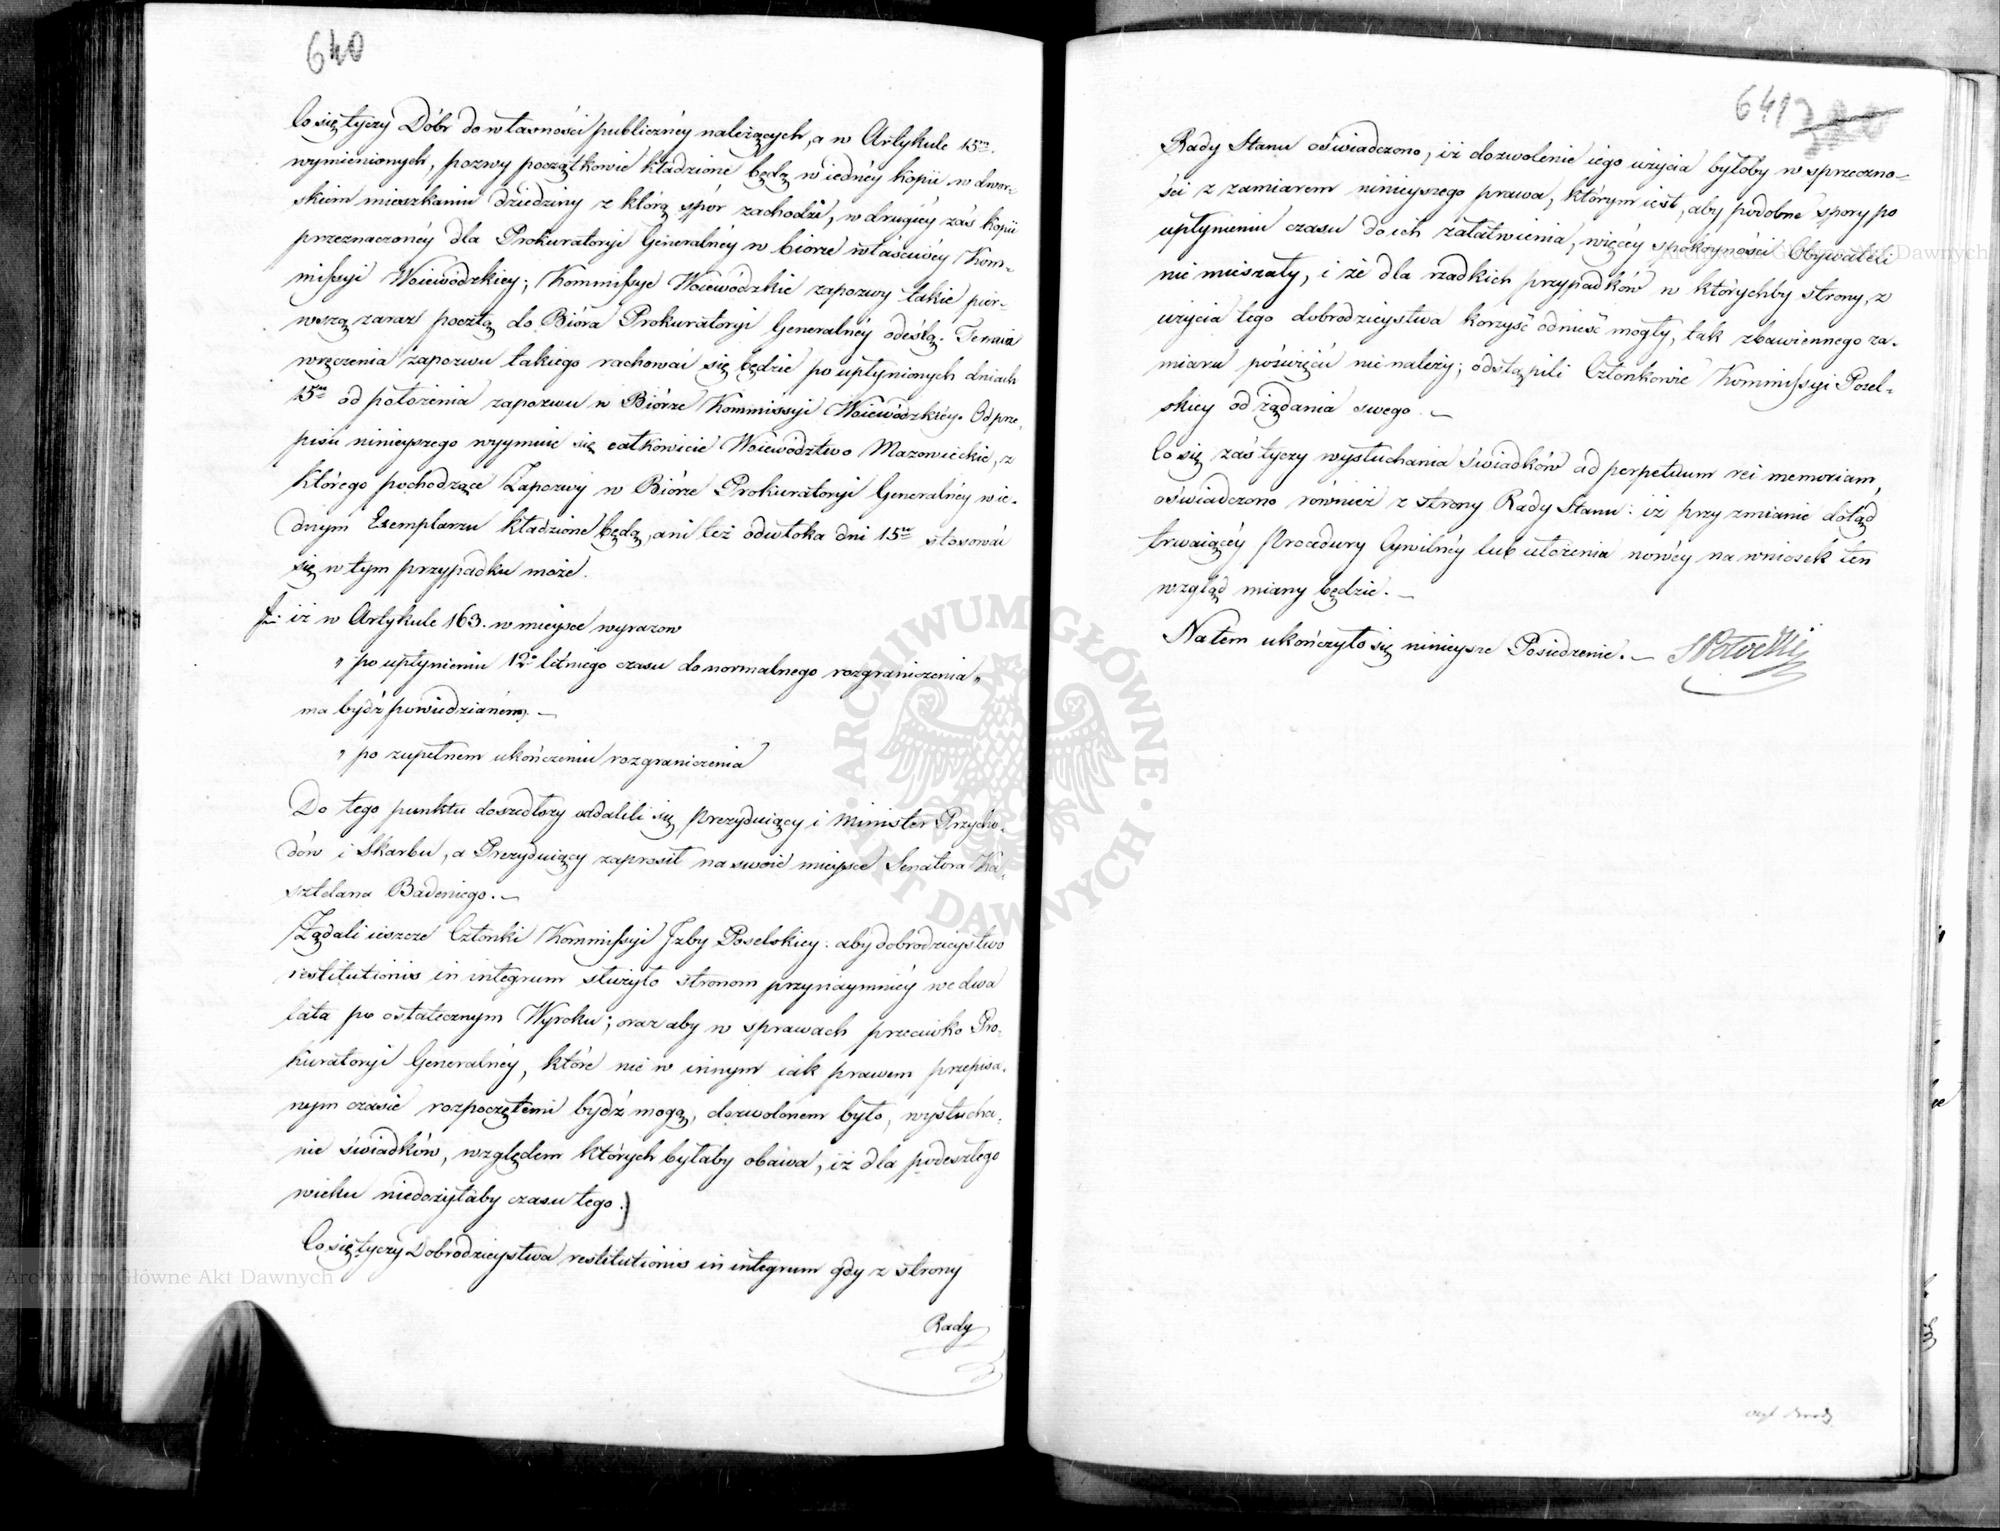 640
Co się tyczy Dóbr do własności publiczney należących, a w Artykule 15m.
wymienionych, pozwy początkowie kładzione będą w iednéy kopii w dwor-
skiem mieszkaniu dziedziny z którą spór zachodzi, w drugiéy zaś kopii
przeznaczonéy dla Prokuratoryi Generalnéy w biorze właściwéy Kom-
missyi Woiewódzkiey; Kommissye Woiewódzkie zapozwy takie pier-
wszą zaraz pocztą do Bióra Prokuratoryi Generalnéy odeślą.
wręczenia zapozwu takiego rachować się będzie po upłynionych dniach
15u od położenia zapozwu w Biórze Kommissyi Woiewódzkiéy. Od prze-
pisu ninieyszego wyymuie się całkowicie Woiewództwo Mazowieckie, z
którego pochodzące Zapozwy w Biórze Prokuratoryi Generalnéy w ie-
dnym Exemplarzu kładzione będą, ani też odwłoka dni 15u stosować
się w tym przypadku może.
f. iż w Artykule 163. w mieysce wyrazow
„ po upłynieniu 12o letniego czasu do normalnego rozgraniczenia „
ma bydź powiedzianém. —
„ po zupełnem ukończeniu rozgraniczenia
Do tego punktu doszedłszy oddalili się Prezyduiący i Minister Przycho-
dów i Skarbu, a Prezyduiący zaprosił na swoie mieysce Senatora Ka-
sztelana Badeniego. —
Żądali ieszcze Członki Kommissyi Izby Poselskiey: aby dobrodzieystwo
restitutionis in integrum służyło stronom przynaymniéy we dwa
lata po ostatecznym Wyroku; oraz aby w sprawach przeciwko Pro-
kuratoryi Generalnéy, które nie w innym iak prawem przepisa-
nym czasie rozpoczętemi bydź mogą, dozwolonem było, wysłucha-
nie świadków, względem których byłaby obawa, iż dla podeszłego
wieku niedożyłaby czasu tego.)
Co się tyczy Dobrodzieystwa restitutionis in integrum gdy z strony
Rady
641
Rady Stanu oświadczono, iż dozwolenie iego użycia byłoby w sprzeczno-
ści z zamiarem ninieyszego prawa, którym iest, aby podobne spory po
upłynieniu czasu do ich załatwienia, więcéy spokoyności Obywateli
nie mieszały, i że dla rzadkich przypadków w którychby strony, z
użycia tego dobrodzieystwa korzyść odnieść mogły, tak zbawiennego za-
miaru poświęcić nie należy; odstąpili Członkowie Kommissyi Posel-
skiey od żądania swego. —
Co się zaś tyczy wysłuchania świadków ad perpetuum rei memoriam,
oświadczono również z strony Rady Stanu: iż przy zmianie dotąd
trwaiącéy Procedury Cywilnéy lub ułożenia nowéy na wniosek ten
wzgląd miany będzie. —
Na tem ukończyło się ninieysze Posiedzenie. —
ARCHIWUM GŁÓWNE AKT DAWNYCH
Archiwum Główne Akt Dawnych
Archiwum Główne Akt Dawnych